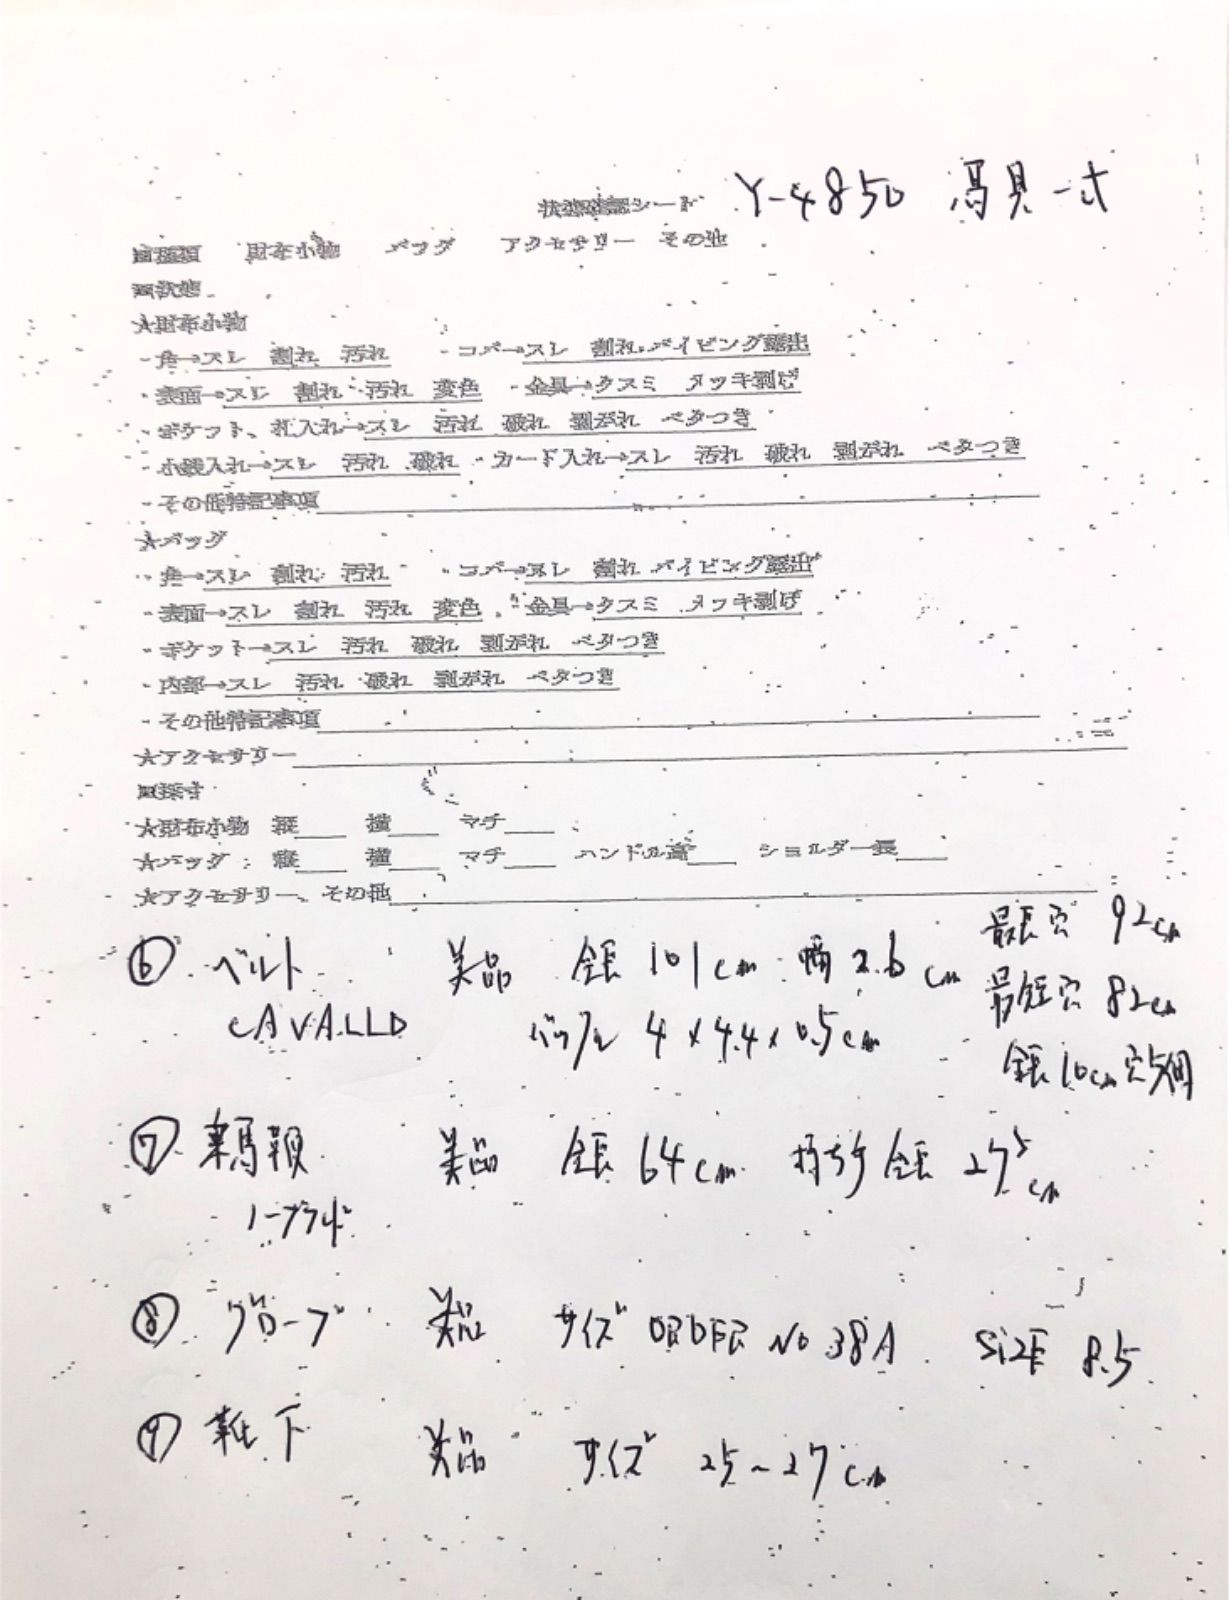 状態確認シート Y-4850 馬具一式
■種類 財布小物 バッグ アクセサリー その他
■状態
★財布小物
・角→スレ 割れ 汚れ ・コバ→スレ 割れ パイピング露出
・表面→スレ 割れ 汚れ 変色 ・金具→クスミ メッキ剥げ
・ポケット、札入れ→スレ 汚れ 破れ 剥がれ ベタつき
・小銭入れ→スレ 汚れ 破れ ・カード入れ→スレ 汚れ 破れ 剥がれ ベタつき
・その他特記事項
★バッグ
・角→スレ 割れ 汚れ ・コバ→スレ 割れ パイピング露出
・表面→スレ 割れ 汚れ 変色 ・金具→クスミ メッキ剥げ
・ポケット→スレ 汚れ 破れ 剥がれ ベタつき
・内部→スレ 汚れ 破れ 剥がれ ベタつき
・その他特記事項
★アクセサリー
■採寸
★財布小物 縦 横 マチ
★バッグ 縦 横 マチ ハンドル高 ショルダー長
★アクセサリー、その他
⑥ ベルト 美品 全長 101cm 幅 2.6cm 最長穴 92cm
最短穴 82cm
CAVALLO バックル 4×4.4×0.5cm
全長 10cm 穴5個
⑦ 乗馬鞭 美品 全長 64cm 持ち手 全長 27.5cm
ノーブランド
⑧ グローブ 美品 サイズ ORDER No 38A SIZE 8.5
⑨ 靴下 美品 サイズ 25~27cm